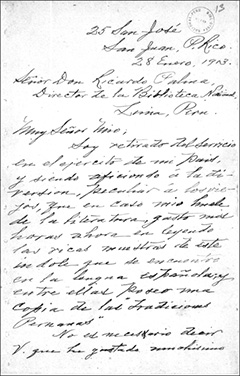 13
25 San José
San Juan, P. Rico.
28 Enero, 1913.
Señor Don Ricardo Palma,
Director de la Biblioteca
Lima, Peru.
Muy Señor Mio,
Soy retirado del servicio
en el ejército de mi país,
y siendo aficionado a la di-
version, peculiar á los vie-
jos, que en caso mio
de la literatura, gasto mis
horas ahora en leyendo
las ricas muestras de este
indole que se encuentra
en la lengua española, y
entre ellas poseo una
copia de las "Tradiciones
Peruanas"
No es necesario decir
V. que he gustado muchísimo